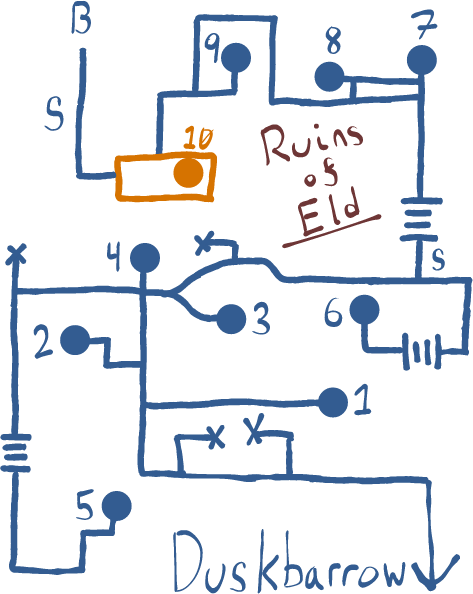 B
7
8
9
S
10
Ruins
of
Eld
S
4
3
6
2
1
5
Duskbarrow